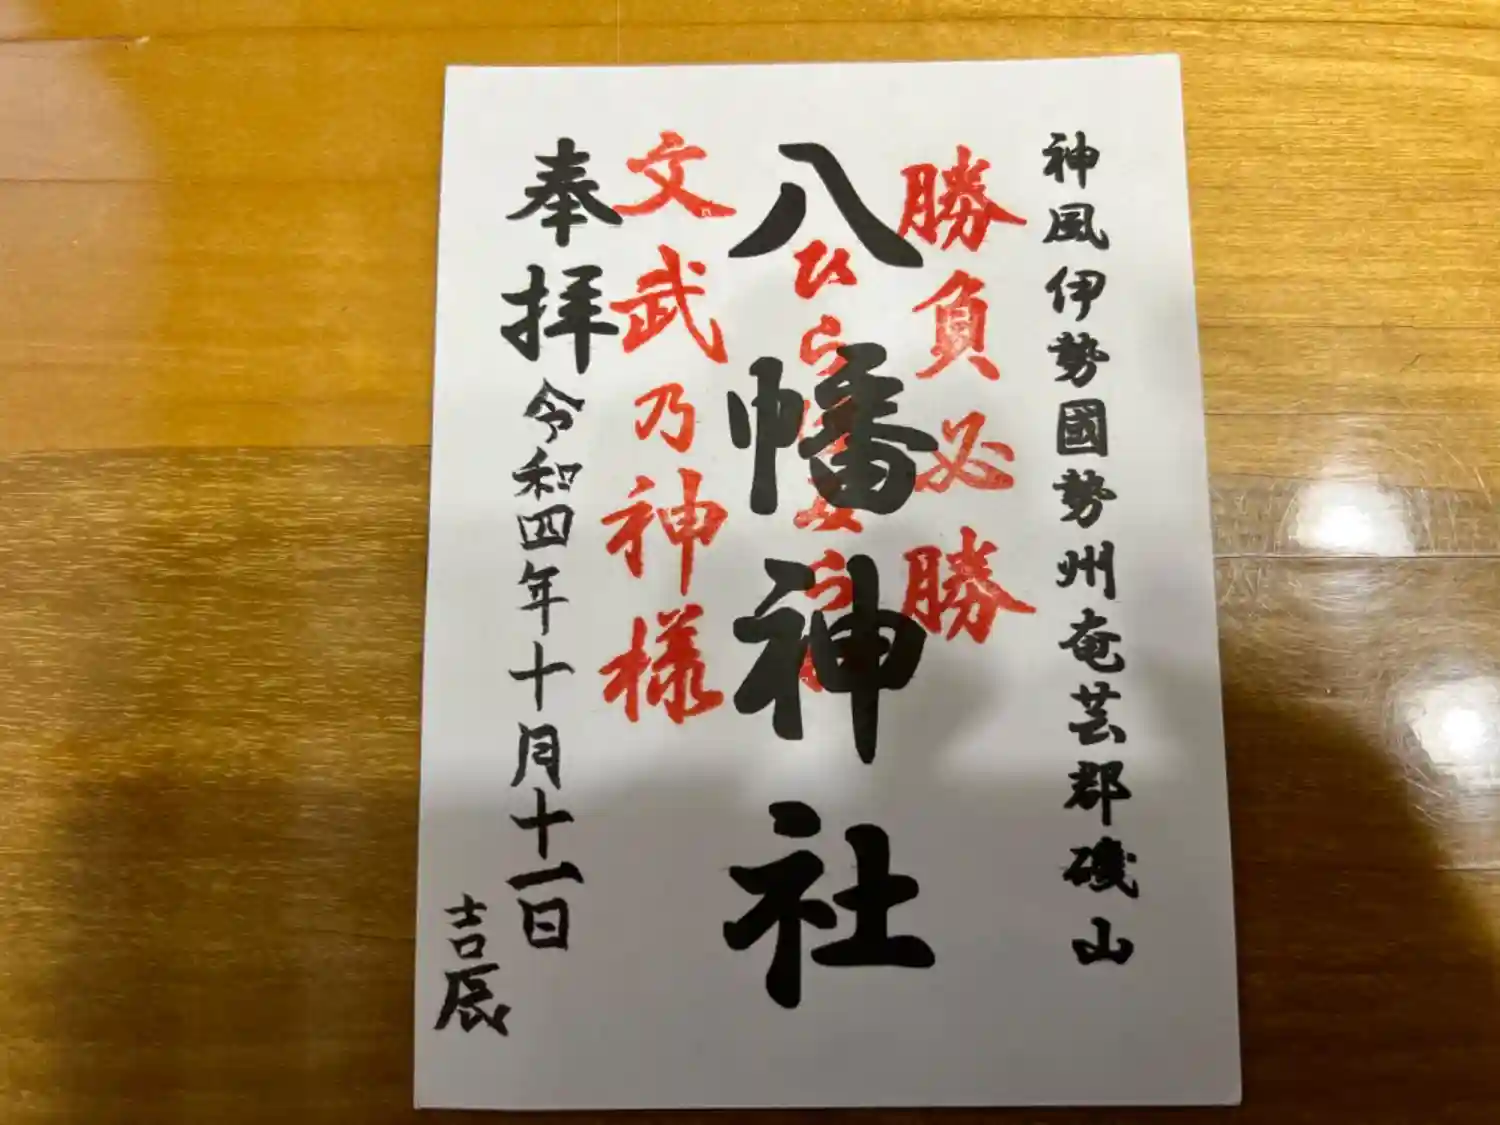 神風伊勢國勢州奄芸郡磯山
勝負必勝
八幡神社
文武乃神様
奉拝
令和四年十月十一日
吉辰